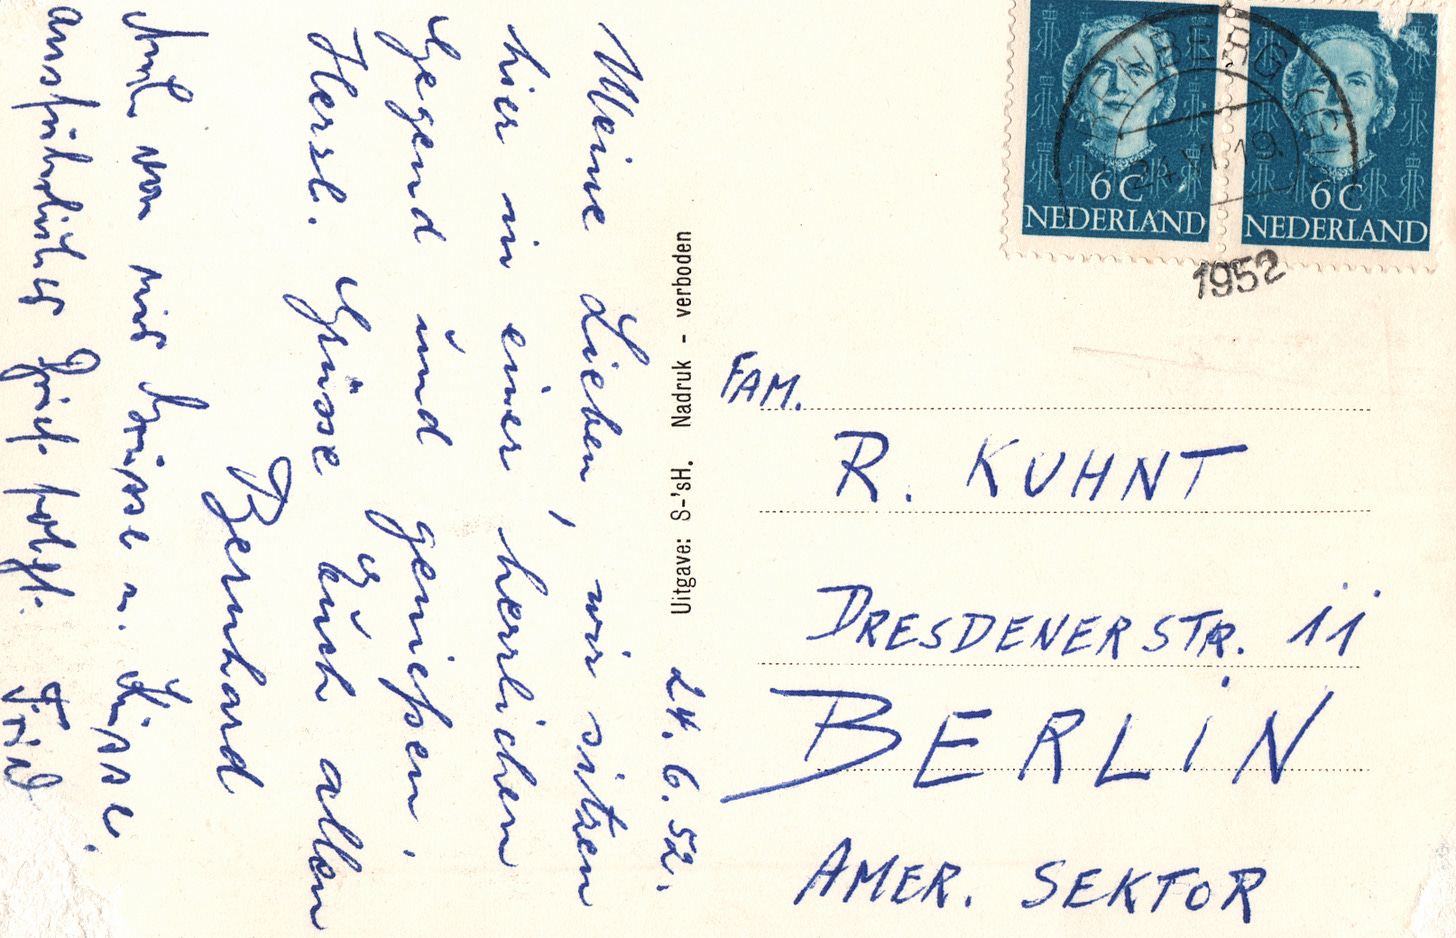 24. 6. 52.
Meine Lieben, wir sitzen
hier in einer herrlichen
Gegend und genießen.
Herzl. Grüsse Euch allen
Bernhard
Auch von mir Grüsse u. Küsse.
ausführlicher Brief folgt.
Uitgave: S-'sH. Nadruk - verboden
6 C
NEDERLAND
6 C
NEDERLAND
24.VI.19
1952
FAM.
R. KUHNT
DRESDENERSTR. 11
BERLIN
AMER. SEKTOR